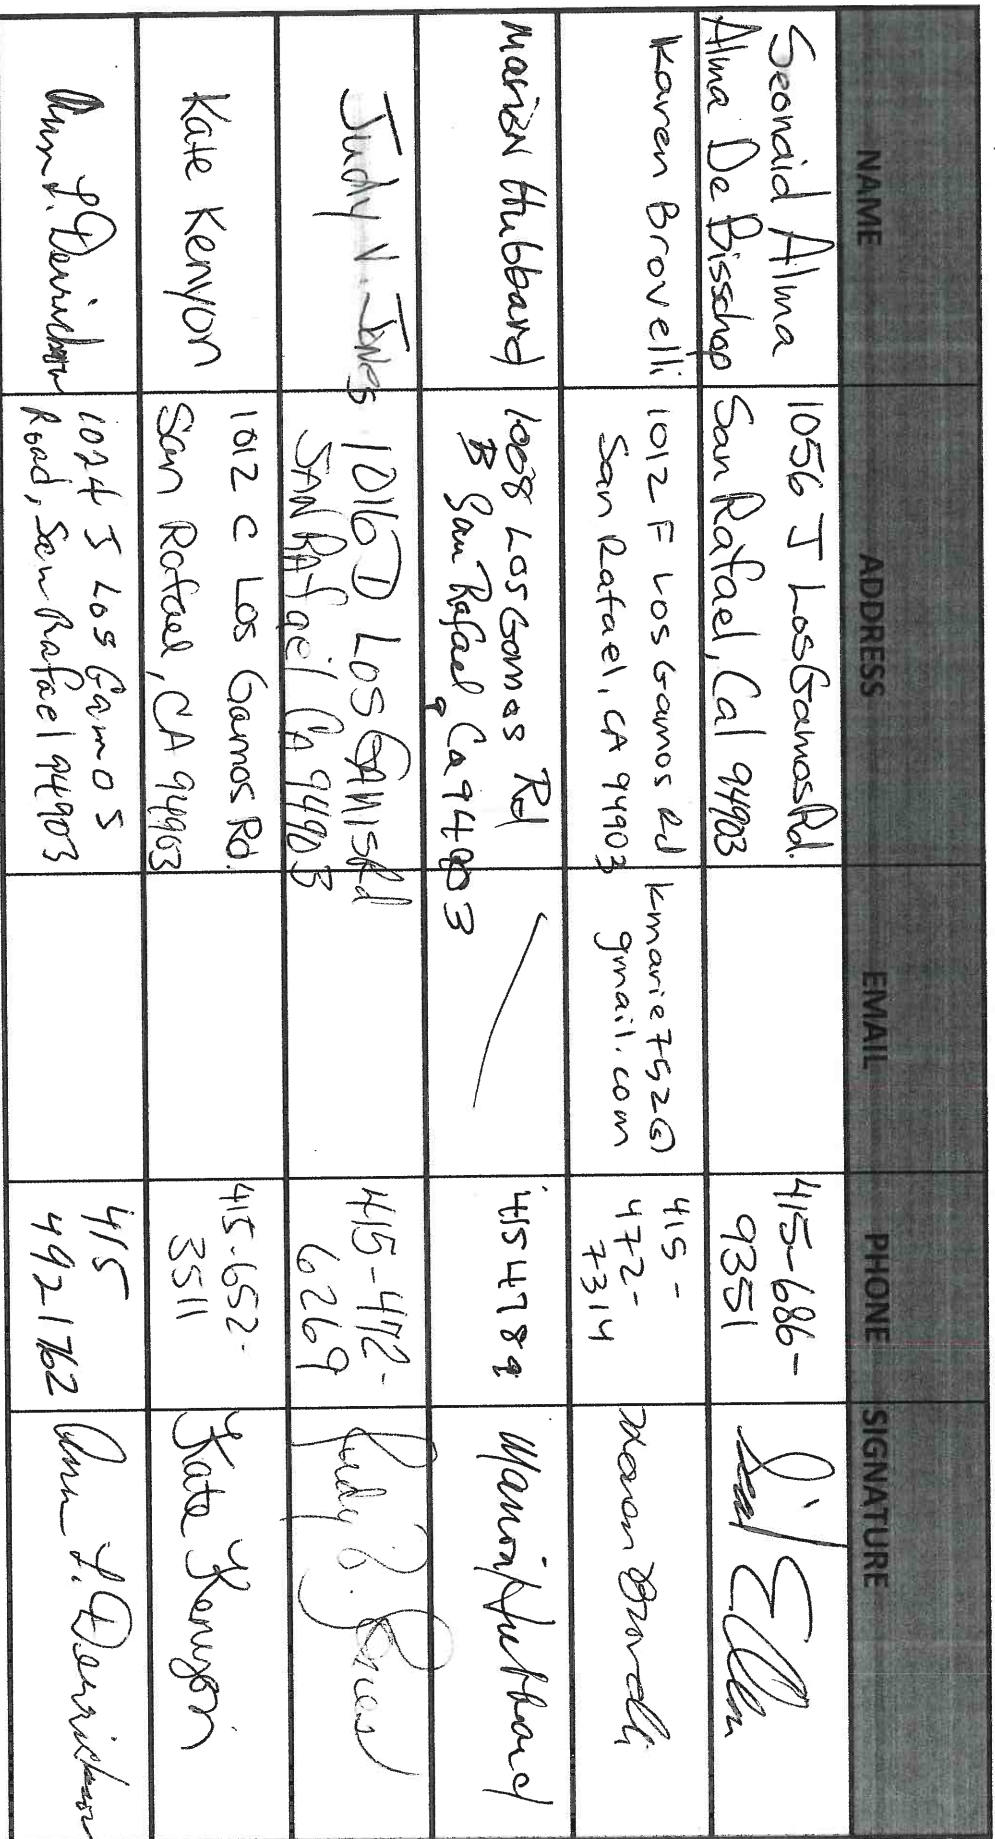 NAME ADDRESS EMAIL PHONE SIGNATURE
Seonaid Alma
Alma De Bisschop
1056 J Los Gamos Rd.
San Rafael, Cal 94903
415-686-
9351
Karen Brovelli
1012 F Los Gamos Rd
San Rafael, CA 94903
kmarie752@
gmail.com
415-
472-
7314
Karen Brovelli
Marion Hubbard
1008 Los Gamos Rd
B San Rafael, Ca 94903
4154789
Marion Hubbard
Judy V. Jones
1016 D Los GAMOS Rd
SAN RAfael CA 94903
415-472-
6269
Kate Kenyon
1012 C Los Gamos Rd.
San Rafael, CA 94903
415-652-
3511
Kate Kenyon
Ann L. Derrickson
1024 J Los Gamos
Road, San Rafael 94903
415
4921762
Ann L. Derrickson